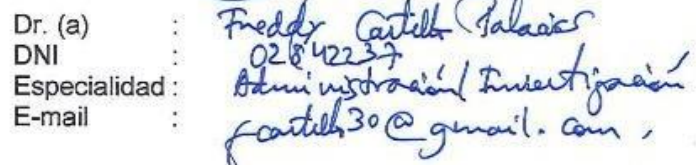 Dr. (a) : Freddy Castillo Palacios
DNI : 02842237
Especialidad : Administración/ Investigación
E-mail : fcastillo30@gmail.com